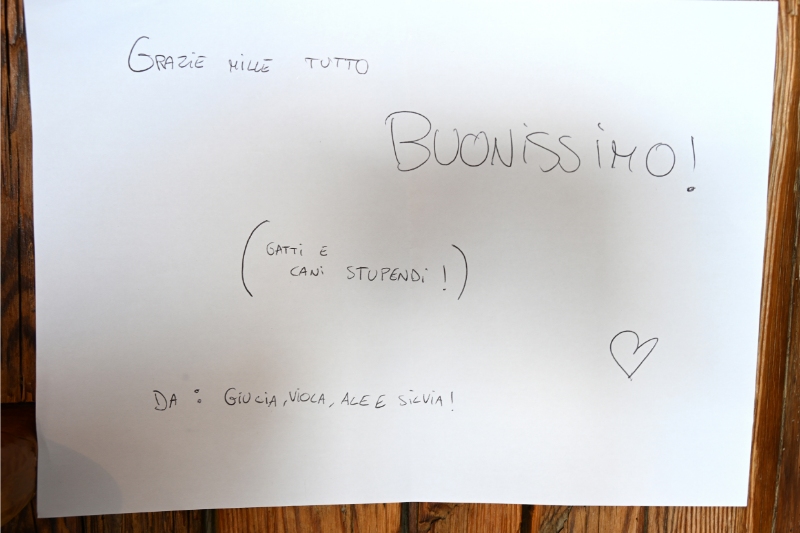 GRAZIE MILLE TUTTO
BUONiSSiMO!
(GATTi E
CANi STUPENDi!)
DA: GIULIA, VIOLA, ALE E SiLVIA!